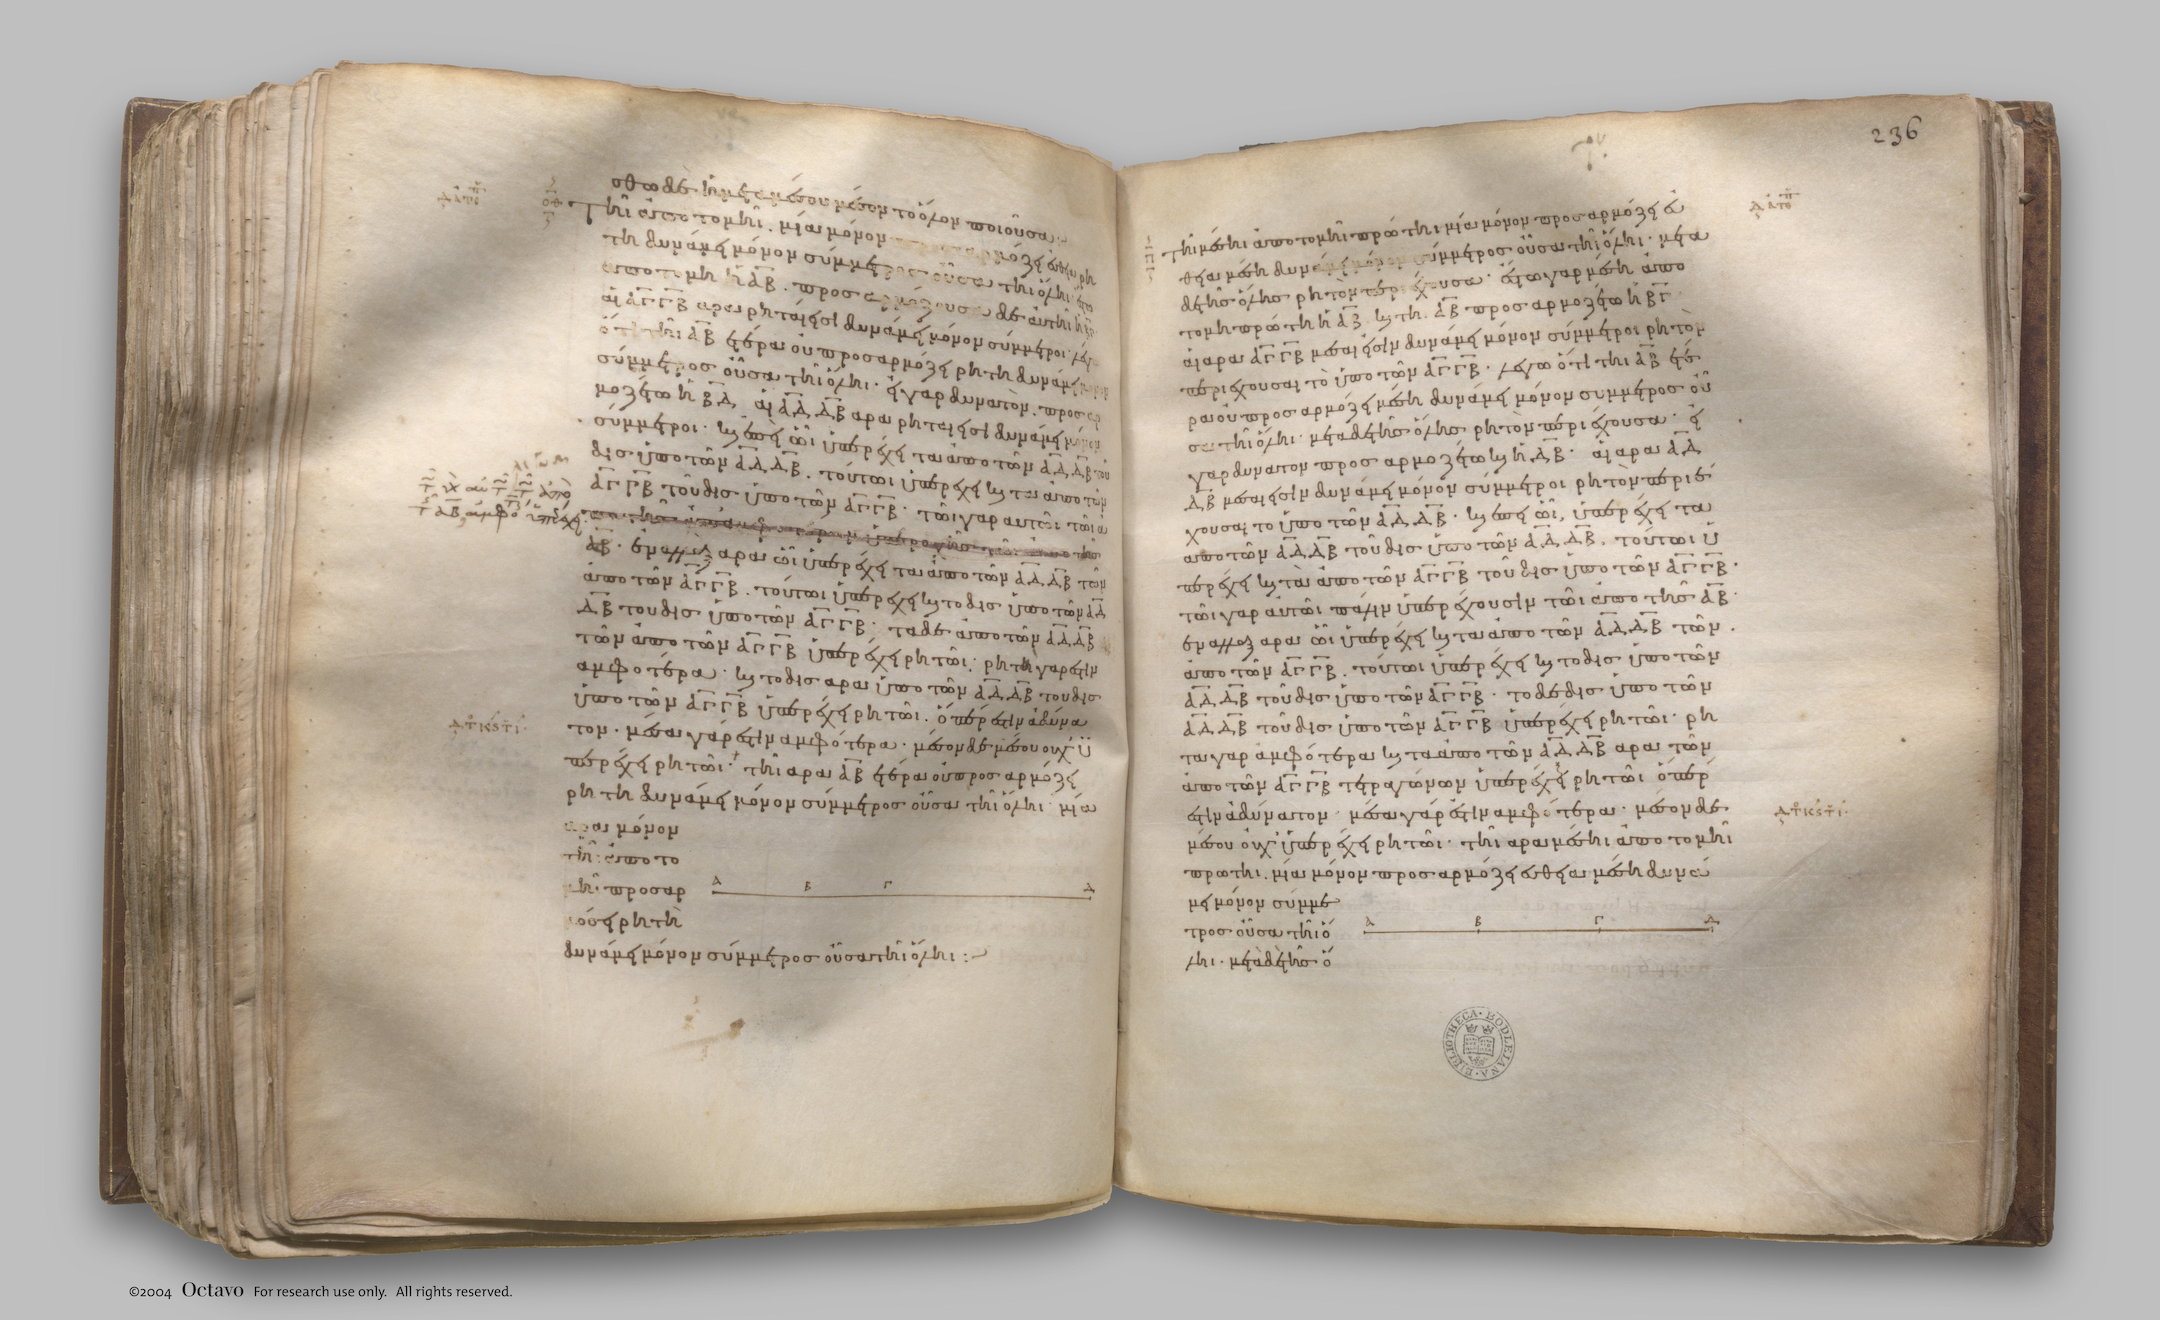 σθω δὲ ἡ μετα μέσου μέσον τὸ ὅλον ποιοῦσα
Τῆι ἀποτομῆι μία μόνον προσαρμόζει εὐθεῖα ρη
τη δυνάμει μόνον σύμμετρος οὖσα τῆι ὅληι
αποτομη ἡ ΑΒ προσαρμόζουσα δε αυτῆι ἡ ΒΓ
αἱ ΑΓ ΓΒ αρα ρηταί εἰσι δυνάμει μόνον σύμμετροι λεγω
ὅτι τῆι ΑΒ ετέρα οὐ προσαρμόζει ρητη δυνάμει μόνον
σύμμετρος οὖσα τῆι ὅληι εἰ γαρ δυνατὸν προσαρ
μοζέτω ἡ ΒΔ αἱ ΑΔ ΔΒ αρα ρηταί εἰσι δυνάμει μόνον
σύμμετροι και ἐπεὶ ὧι ὑπερέχει τα ἀπο τῶν ΑΔ ΔΒ του
δις ὑπο τῶν ΑΔ ΔΒ τούτωι ὑπερέχει και τα ἀπο τῶν
ΑΓ ΓΒ τοῦ δις ὑπο τῶν ΑΓ ΓΒ τῶι γαρ αυτῶι τῶι ἀ
ΑΒ εναλλαξ αρα ὧι ὑπερέχει τα ἀπο τῶν ΑΔ ΔΒ τῶν
ἀπο τῶν ΑΓ ΓΒ τούτωι ὑπερέχει και το δις ὑπο τῶν ΑΔ
ΔΒ του δις ὑπο τῶν ΑΓ ΓΒ τα δε ἀπο τῶν ΑΔ ΔΒ
τῶν ἀπο τῶν ΑΓ ΓΒ ὑπερέχει ρητῶι ρητα γαρ ἐστιν
αμφοτέρα και το δις αρα ὑπο τῶν ΑΔ ΔΒ του δις
ὑπο τῶν ΑΓ ΓΒ ὑπερέχει ρητῶι ὅπερ ἐστιν ἀδύνα
τον μέσα γάρ ἐστιν αμφότερα μέσον δε μέσου ουχ ὑ
περέχει ρητῶι τῆι αρα ΑΒ ετέρα οὐ προσαρμόζει
ρητη δυνάμει μόνον σύμμετρος οὖσα τῆι ὅληι μία
αρα μόνον
τῆι ἀποτο
μῆι προσαρ
μόσει ρητὴ
δυνάμει μόνον σύμμετρος οὖσα τῆι ὅληι
Α Β Γ Δ
236
Τῆι μέσηι ἀποτομῆι πρώτηι μία μόνον προσαρμόζει εὐ
θεῖα μέση δυνάμει μόνον σύμμετρος οὖσα τῆι ὅληι μετα
δε τῆς ὅλης ρητὸν περιέχουσα ἔστω γαρ μέση ἀπο
τομη πρώτη ἡ ΑΒ και τηι ΑΒ προσαρμοζέτω ἡ ΒΓ
αἱ αρα ΑΓ ΓΒ μέσαι εἰσὶν δυνάμει μόνον σύμμετροι ρητὸν
περιέχουσαι τὸ ὑπο τῶν ΑΓ ΓΒ λέγω ὅτι τηι ΑΒ ετέ
ρα οὐ προσαρμόζει μέση δυνάμει μόνον σύμμετρος οὖ
σα τῆι ὅληι μετα δε τῆς ὅλης ρητὸν περιέχουσα εἰ
γαρ δυνατον προσαρμοζέτω και ἡ ΔΒ αἱ αρα ΑΔ
ΔΒ μέσαι εἰσὶν δυνάμει μόνον σύμμετροι ρητὸν περιέ
χουσαι το ὑπο τῶν ΑΔ ΔΒ και ἐπεὶ ὧι ὑπερέχει τα
απο τῶν ΑΔ ΔΒ τοῦ δις ὑπο τῶν ΑΔ ΔΒ τούτωι ὑ
περέχει και τὰ ἀπο τῶν ΑΓ ΓΒ τοῦ δις ὑπο τῶν ΑΓ ΓΒ
τῶι γαρ αὐτῶι πάλιν ὑπερέχουσιν τῶι ἀπο τῆς ΑΒ
εναλλαξ αρα ὧι ὑπερέχει και τα ἀπο τῶν ΑΔ ΔΒ τῶν
ἀπο τῶν ΑΓ ΓΒ τούτωι ὑπερέχει και το δις ὑπο τῶν
ΑΔ ΔΒ τοῦ δις ὑπο τῶν ΑΓ ΓΒ το δε δις ὑπο τῶν
ΑΔ ΔΒ τοῦ δις ὑπο τῶν ΑΓ ΓΒ ὑπερέχει ρητῶι ρη
τα γαρ ἀμφότερα και τα ἀπο τῶν ΑΔ ΔΒ αρα τῶν
ἀπο τῶν ΑΓ ΓΒ τετραγώνων ὑπερέχει ρητῶι ὅπερ
ἐστιν ἀδύνατον μέσα γάρ ἐστιν αμφότερα μέσον δε
μέσου οὐχ ὑπερέχει ρητῶι τῆι αρα μέσηι ἀποτομῆι
πρωτηι μία μόνον προσαρμόζει εὐθεῖα μέση δυνά
μει μόνον σύμμε
τρος οὖσα τῆι ὅ
ληι μετὰ δε τῆς ὅ
Α Β Γ Δ
BIBLIOTHECA BODLEIANA
©2004 Octavo For research use only. All rights reserved.